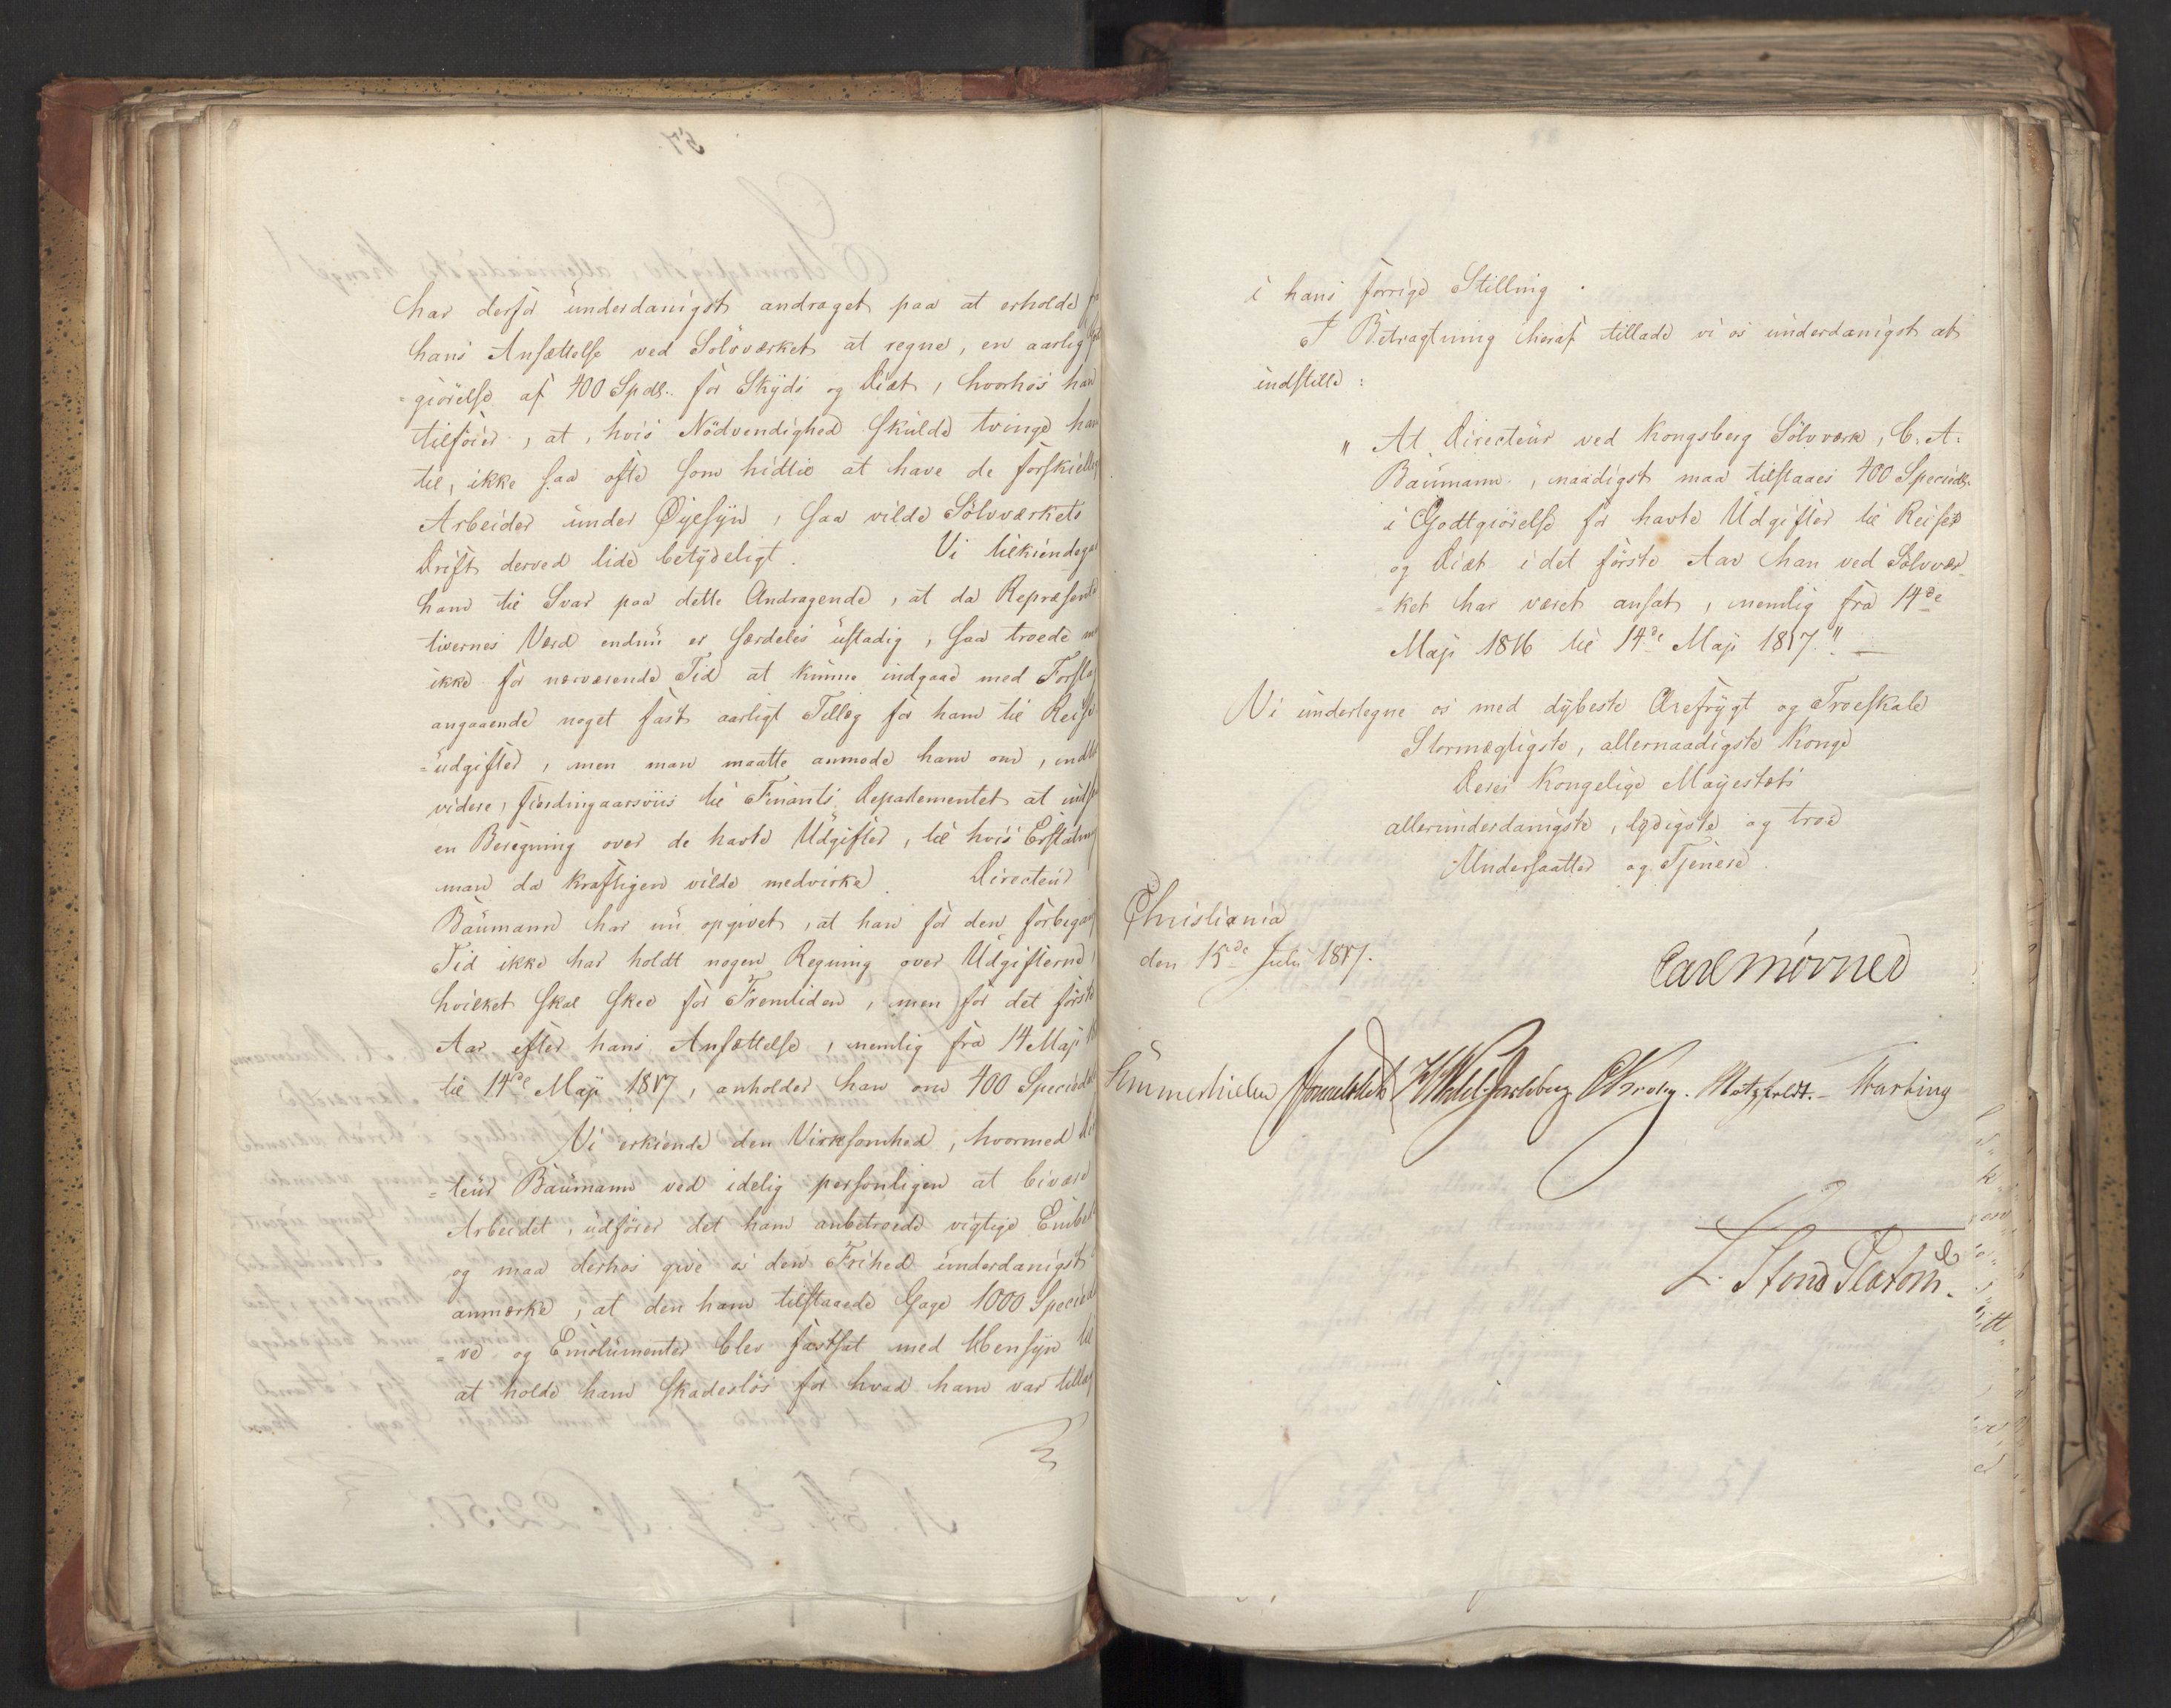 har derfor underdanigst andraget paa at erholde fra
hans Ansættelse ved Sølvværket at regne, en aarlig
giörelse af 400 Spdl. for Skyds og Diæt, hvorhos han
tilföier, at, hvis Nödvendighed skulde tvinge ham
til, ikke saa ofte som hidtil at have de forskiellige
Arbeider under Øyesÿn, saa vilde Sölvværkets
Drift derved lide betÿdeligt. Vi tilkiendegav
ham til Svar paa dette Andragende, at da Repræsenta
tivernes Værd endnu er særdeles ustadig, saa troede man
ikke for nærværende Tid at kunne indgaae med Forslag
angaaende noget fast aarligt Tillæg for ham til Reise
=udgifter, men man maatte anmode ham om, indtil
videre, fierdingaarsviis til Finants Departementet at indsende
en Beregning over de havte Udgifter, til hvis Erstatning
man da kraftigen vilde medvirke. Directeur
Baumann har nu opgivet, at han for den forbigangne
Tid ikke har holdt nogen Regning over Udgifterne,
hvilket skal skee for Fremtiden, men for det förste
Aar efter hans Ansættelse, nemlig fra 14 Maji
til 14de Maji 1817, anholder han om 400 Speciedaler
Vi erkiende den Virksomhed, hvormed
=teur Baumann ved idelig personligen at bivære
Arbeidet, udförer det ham anbetroede vigtige Embede
og maa derhos give os den Frihed underdanigst
anmærke, at den ham tilstaaede Gage 1000 Specied
=re og Emolumenter blev fastsat med Hensÿn til
at holde ham skadeslös for hvad ham var tillagt
i hans forrige Stilling.
I Betragtning heraf tillade vi os underdanigst at
indstille:
" At Directeur ved Kongsberg Sölvværk, C. A.
Baumann, naadigst maa tilstaaes 400 Speciedlr.
i Godtgiörelse for havte Udgifter til Reiser
og Diæt i det förste Aar han ved Sölvvær
=ket har været ansat, nemlig fra 14de
Maji 1816 til 14de Maji 1817."
Vi undertegne os med dÿbeste Ærefrÿgt og Troeskab
Stormægtigste, allernaadigste Konge
Deres Kongelige Mayestæts
allerunderdanigste, lÿdigste og troe
Undersaatter og Tjenere.
Christiania
den 15de Juli 1817.
Carl Mörner
Sommerhielm Hans Wedel Jarlsberg Krohg. Motzfeldt. -
L. Stoud Platou.